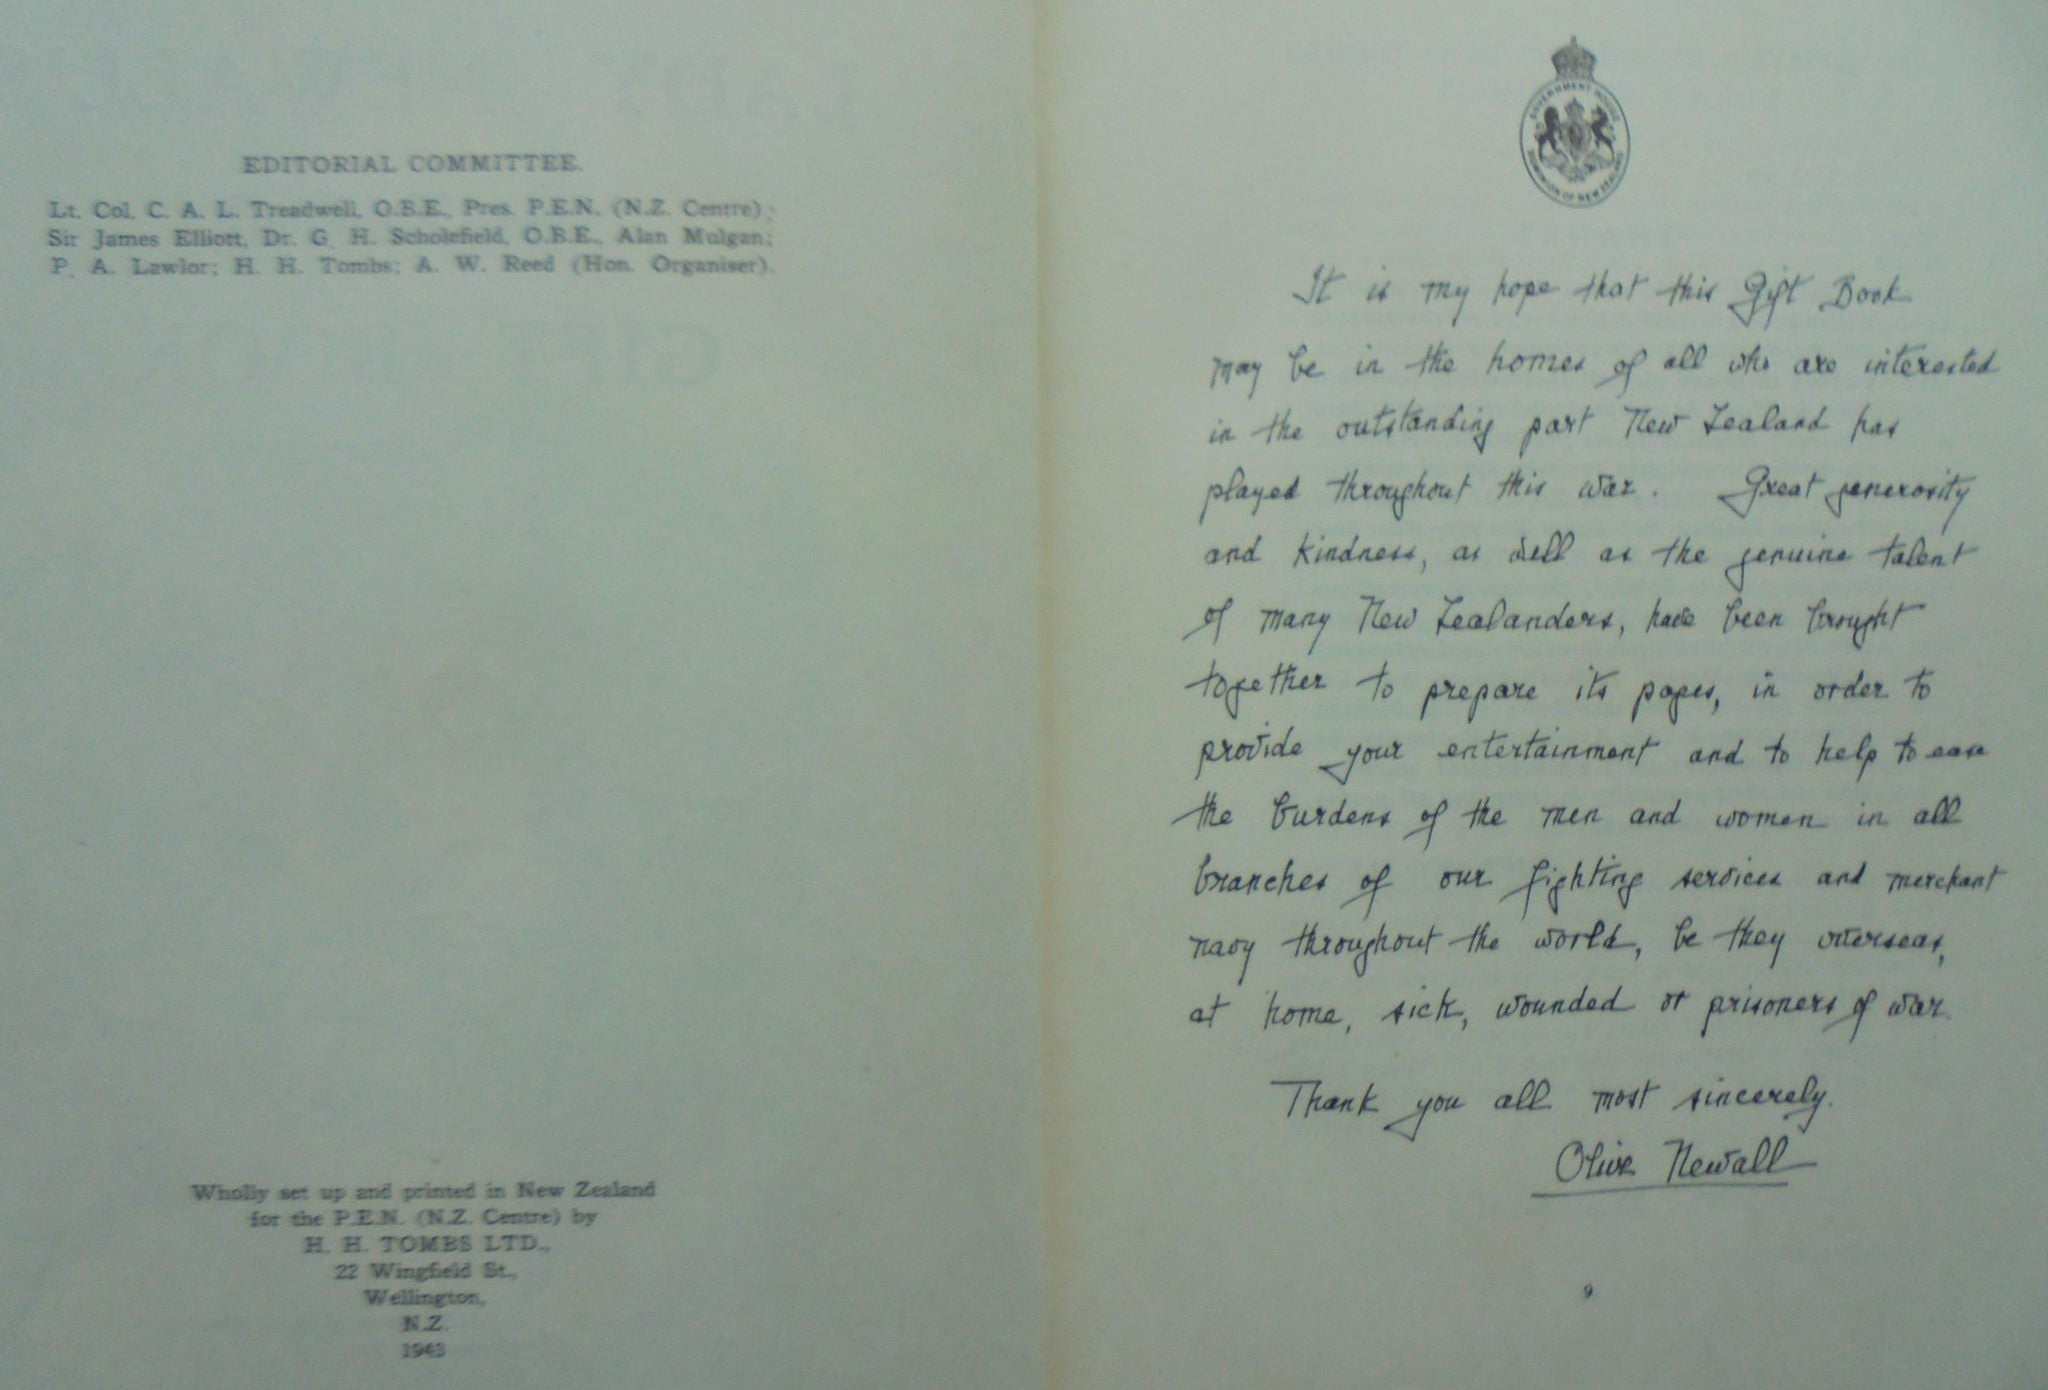 EDITORIAL COMMITTEE.
Lt. Col. C. A. L. Treadwell, O.B.E., Pres. P.E.N. (N.Z. Centre);
Sir James Elliott, Dr. G. H. Scholefield, O.B.E., Alan Mulgan;
P. A. Lawlor; H. H. Tombs; A. W. Reed (Hon. Organiser).
Wholly set up and printed in New Zealand
for the P.E.N. (N.Z. Centre) by
H. H. TOMBS LTD.,
22 Wingfield St.,
Wellington,
N.Z.
1943
GOVERNMENT HOUSE
DOMINION OF NEW ZEALAND
It is my hope that this Gift Book
may be in the homes of all who are interested
in the outstanding part New Zealand has
played throughout this war. Great generosity
and kindness, as well as the genuine talent
of many New Zealanders, have been brought
together to prepare its pages, in order to
provide your entertainment and to help to ease
the burdens of the men and women in all
branches of our fighting services and merchant
navy throughout the world, be they overseas,
at home, sick, wounded or prisoners of war.
Thank you all most sincerely.
Olive Newall
9